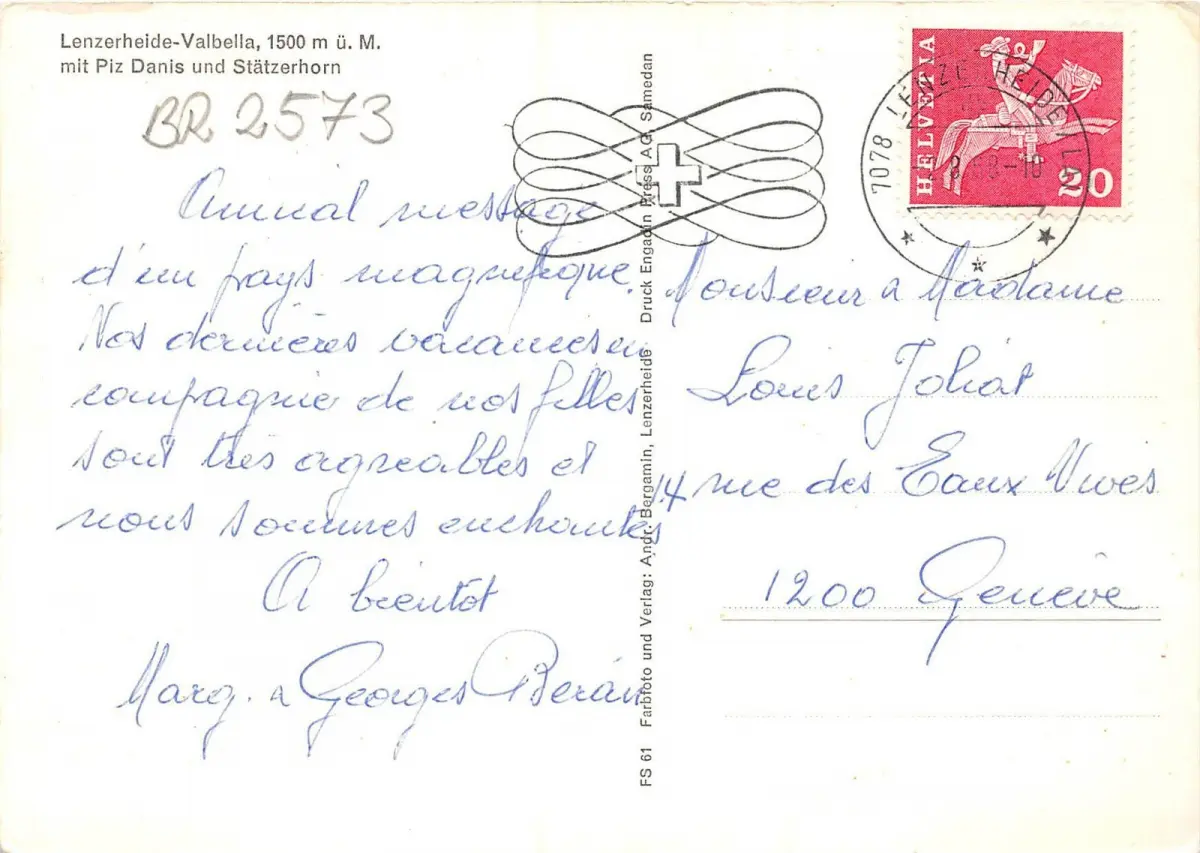 Lenzerheide-Valbella, 1500 m ü. M.
mit Piz Danis und Stätzerhorn
BR 2573
Amical message
d'un pays magnifique.
Nos dernières vacances en
compagnie de nos filles
sont très agréables et
nous sommes enchantés
A bientôt
Marg. & Georges Berán
FS 61 Farbfoto und Verlag: Andr. Bergamin, Lenzerheide Druck Engadin Press AG, Samedan
HELVETIA
20
7078 LENZERHEIDE/LAI
Monsieur & Madame
Louis Joliat
14 rue des Eaux Vives
1200 Genève